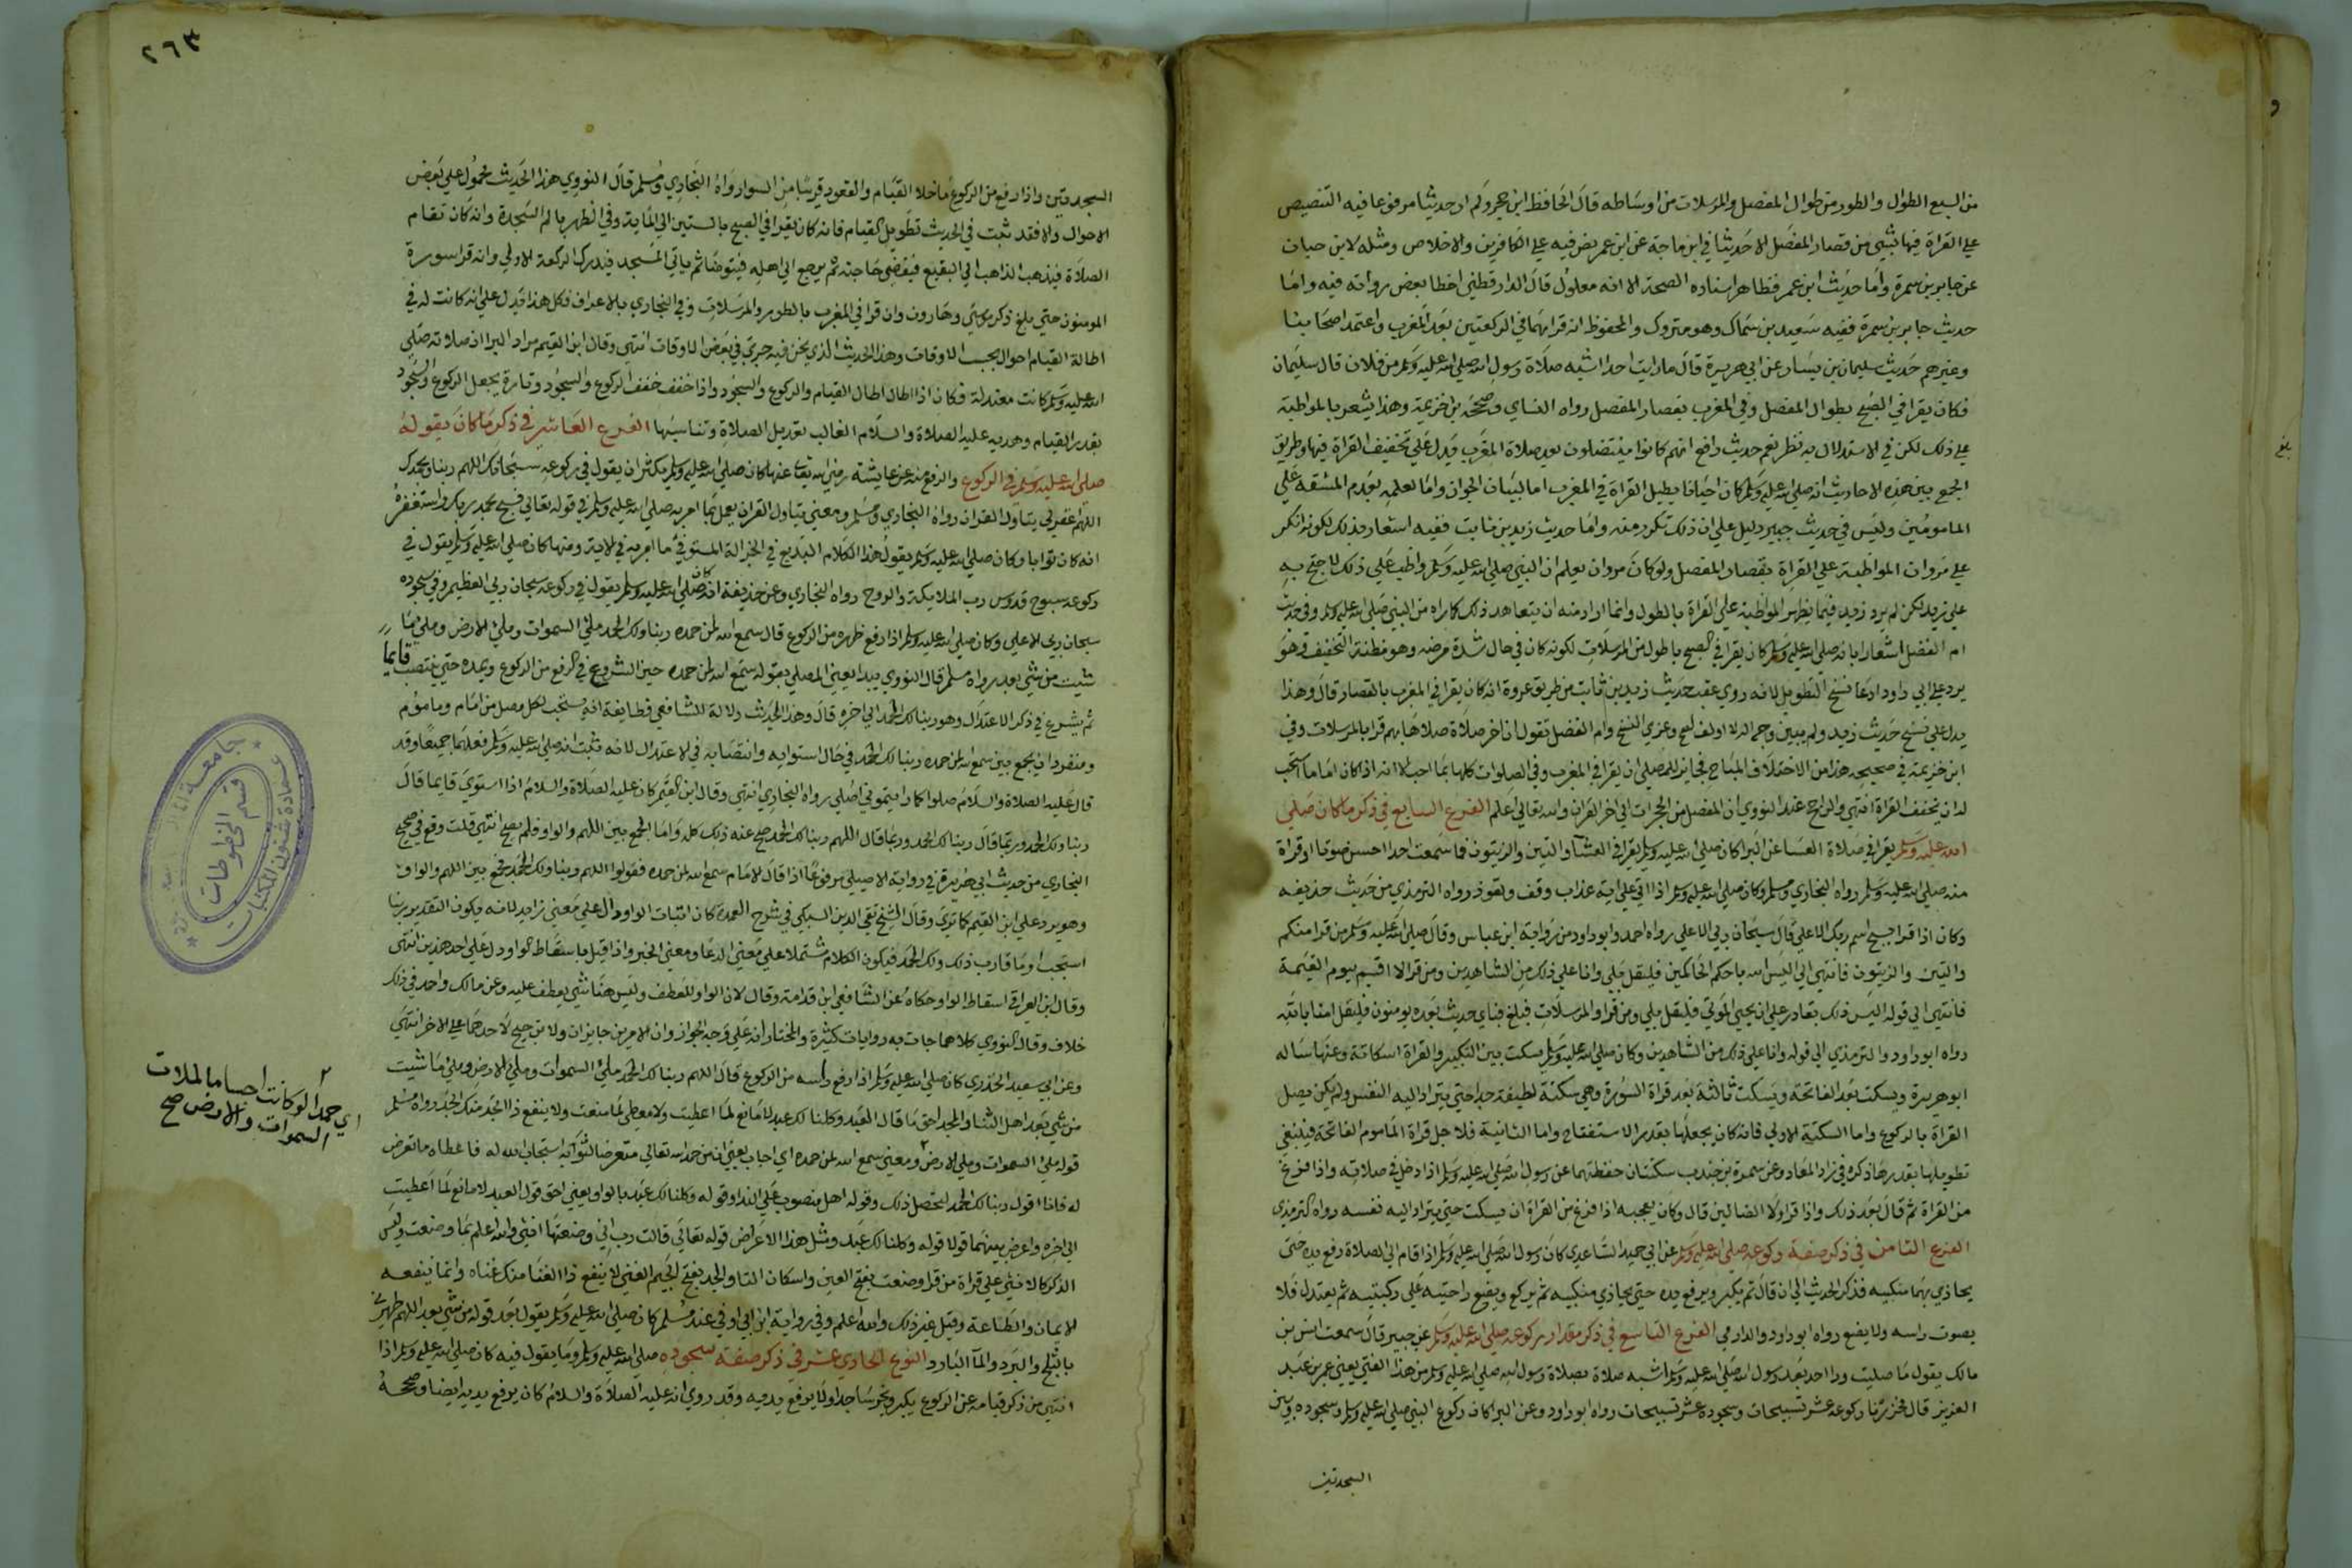 من السبع الطوال والطور من طوال المفصل والمرسلات من اوساطه قال الحافظ ابن حجر ولم ار حديثا مرفوعا فيه التنصيص
علي القراة فيها بشي من قصار المفصل الا حديثا في ابن ماجة عن ابن عمر نص فيه علي الكافرين والاخلاص ومثله لابن حبان
عن جابر بن سمرة واما حديث ابن عمر فظاهر اسناده الصحة الا انه معلول قال الدارقطني اخطا بعض رواته فيه واما
حديث جابر بن سمرة ففيه سعيد بن سماك وهو متروك والمحفوظ انه قرا بهما في الركعتين بعد المغرب واعتمد اصحابنا
وغيرهم حديث سليمان بن يسار عن ابي هريرة قال ما رايت احدا اشبه صلاة رسول الله صلي الله عليه وسلم من فلان قال سليمان
فكان يقرا في الصبح بطوال المفصل وفي المغرب بقصار المفصل رواه النساي وصححه بن خزيمة وهذا يشعر بالمواظبة
علي ذلك لكن في الاستدلال به نظر نعم حديث رافع انهم كانوا ينتضلون بعد صلاة المغرب يدل علي تخفيف القراة فيها وطريق
الجمع بين هذه الاحاديث انه صلي الله عليه وسلم كان احيانا يطيل القراة في المغرب اما لبيان الجواز واما لعلمه بعدم المشقة علي
المامومين وليس في حديث جبير دليل علي ان ذلك تكرر منه واما حديث زيد بن ثابت ففيه اشعار بذلك لكونه انكر
علي مروان المواظبة علي القراة بقصار المفصل ولو كان مروان يعلم ان النبي صلي الله عليه وسلم واظب علي ذلك لاحتج به
علي زيد لكن لم يرد زيد فيما يظهر المواظبة علي القراة بالطول وانما اراد منه ان يتعاهد ذلك كما راه من النبي صلي الله عليه وسلم وفي حديث
ام الفضل اشعار بانه صلي الله عليه وسلم كان يقرا في الصبح باطول من المرسلات لكونه كان في حال شدة مرضه وهو مظنة التخفيف وهو
يرد علي ابي داود ادعا نسخ التطويل لانه روي عقب حديث زيد بن ثابت من طريق عروة انه كان يقرا في المغرب بالقصار قال وهذا
يدل علي نسخ حديث زيد ولم يبين وجه الدلالة وكيف تصح دعوي النسخ وام الفضل تقول ان اخر صلاة صلاها بهم قرا بالمرسلات وفي
ابن خزيمة في صحيحه هذا من الاختلاف المباح فجايز للمصلي ان يقرا في المغرب وفي الصلوات كلها بما احب الا انه اذا كان اماما استحب
له ان يخفف القراة انتهي والراجح عند النووي ان المفصل من الحجرات الي اخر القران والله تعالي اعلم الفرع السابع في ذكر ما كان صلي
الله عليه وسلم يقرا في صلاة العشا عن البرا كان صلي الله عليه وسلم يقرا في العشا والتين والزيتون فما سمعت احدا احسن صوتا او قراة
منه صلي الله عليه وسلم رواه البخاري ومسلم وكان صلي الله عليه وسلم اذا اتي علي اية عذاب وقف وتعوذ رواه الترمذي من حديث حذيفه
وكان اذا قرا سبح اسم ربك الاعلي قال سبحان ربي الاعلي رواه احمد وابو داود من رواية ابن عباس وقال صلي الله عليه وسلم من قرا منكم
والتين والزيتون فانتهي الي اليس الله باحكم الحاكمين فليقل بلي وانا علي ذلك من الشاهدين ومن قرا لا اقسم بيوم القيمة
فانتهي الي قوله اليس ذلك بقادر علي ان يحيي الموتي فليقل بلي ومن قرا والمرسلات فبلغ فباي حديث بعده يومنون فليقل امنا بالله
رواه ابو داود والترمذي الي قوله وانا علي ذلك من الشاهدين وكان صلي الله عليه وسلم يسكت بين التكبير والقراة اسكاتة وعنها ساله
ابو هريرة ويسكت بعد الفاتحة ويسكت ثالثة بعد قراة السورة وهي سكتة لطيفة جدا حتي يتراد اليه النفس ولم يكن يصل
القراة بالركوع واما السكتة الاولي فانه كان يجعلها بقدر الاستفتاح واما الثانية فلاجل قراة الماموم الفاتحة فينبغي
تطويلها بقدرها ذكره في زاد المعاد وعن سمرة بن جندب سكتتان حفظتهما عن رسول الله صلي الله عليه وسلم اذا دخل في صلاته واذا فرغ
من القراة ثم قال بعد ذلك واذا قرا ولا الضالين قال وكان يعجبه اذا فرغ من القراة ان يسكت حتي يتراد اليه نفسه رواه الترمذي
الفرع الثامن في ذكر صفة ركوعه صلي الله عليه وسلم عن ابي حميد الساعدي كان رسول الله صلي الله عليه وسلم اذا قام الي الصلاة رفع يديه حتي
يحاذي بهما منكبيه فذكر الحديث الي ان قال ثم يكبر ويرفع يديه حتي يحاذي منكبيه ثم يركع ويضع راحتيه علي ركبتيه ثم يعتدل فلا
يصوب راسه ولا يقنع رواه ابو داود والدارمي الفرع التاسع في ذكر مقدار ركوعه صلي الله عليه وسلم عن جبير قال سمعت انس بن
مالك يقول ما صليت ورا احد بعد رسول الله صلي الله عليه وسلم اشبه صلاة بصلاة رسول الله صلي الله عليه وسلم من هذا الفتي يعني عمر بن عبد
العزيز قال فحزرنا ركوعه عشر تسبيحات وسجوده عشر تسبيحات رواه ابو داود وعن البرا كان ركوع النبي صلي الله عليه وسلم وسجوده وبين
السجدتين
بلغ
٢٦٣
السجدتين واذا رفع من الركوع ما خلا القيام والقعود قريبا من السوا رواه البخاري ومسلم قال النووي هذا الحديث محمول علي بعض
الاحوال والا فقد ثبت في الحديث تطويل القيام فانه كان يقرا في الصبح بالستين الي الماية وفي الظهر بالم السجدة وانه كان تقام
الصلاة فيذهب الذاهب الي البقيع فيقضي حاجته ثم يرجع الي اهله فيتوضا ثم ياتي المسجد فيدرك الركعة الاولي وانه قرا سورة
المومنون حتي بلغ ذكر موسي وهارون وان قرا في المغرب بالطور والمرسلات وفي البخاري بالاعراف فكل هذا يدل علي انه كانت له في
اطالة القيام احوال بحسب الاوقات وهذا الحديث الذي نحن فيه جري في بعض الاوقات انتهي وقال ابن القيم مراد البرا ان صلاته صلي
الله عليه وسلم كانت معتدلة فكان اذا اطال اطال القيام والركوع والسجود واذا خفف خفف الركوع والسجود وتارة يجعل الركوع والسجود
بقدر القيام وهديه عليه الصلاة والسلام الغالب تعديل الصلاة وتناسبها الفرع العاشر في ذكر ما كان يقوله
صلي الله عليه وسلم في الركوع والرفع منه عن عايشة رضي الله تعالي عنها كان صلي الله عليه وسلم يكثر ان يقول في ركوعه سبحانك اللهم ربنا وبحمدك
اللهم اغفر لي يتاول القران رواه البخاري ومسلم ومعني يتاول القران يعمل بما امر به صلي الله عليه وسلم في قوله تعالي فسبح بحمد ربك واستغفره
انه كان توابا وكان صلي الله عليه وسلم يقول هذا الكلام البديع في الجزالة المستوفي ما امر به في الاية ومنها كان صلي الله عليه وسلم يقول في
ركوعه سبوح قدوس رب الملايكة والروح رواه البخاري وعن حذيفة انه كان صلي الله عليه وسلم يقول في ركوعه سبحان ربي العظيم وفي سجوده
سبحان ربي الاعلي وكان صلي الله عليه وسلم اذا رفع ظهره من الركوع قال سمع الله لمن حمده ربنا ولك الحمد ملي السموات وملي الارض وملي ما
شيت من شي بعد رواه مسلم قال النووي يبدا يعني المصلي بقوله سمع الله لمن حمده حين الشروع في الرفع من الركوع ويمده حتي ينتصب قايما
ثم يشرع في ذكر الاعتدال وهو ربنا لك الحمد الي اخره قال وهذا الحديث دلالة للشافعي وطايفة انه يستحب لكل مصل من امام وماموم
ومنفرد ان يجمع بين سمع الله لمن حمده ربنا لك الحمد في حال استوايه وانتصابه في الاعتدال لانه ثبت انه صلي الله عليه وسلم فعلهما جميعا وقد
قال عليه الصلاة والسلام صلوا كما رايتموني اصلي رواه البخاري انتهي وقال ابن القيم كان عليه الصلاة والسلام اذا استوي قايما قال
ربنا ولك الحمد وربما قال ربنا لك الحمد وربما قال اللهم ربنا لك الحمد صح عنه ذلك كله واما الجمع بين اللهم والواو فلم يصح انتهي قلت وقع في صحيح
البخاري من حديث ابي هريرة في رواية الاصيلي مرفوعا اذا قال الامام سمع الله لمن حمده فقولوا اللهم ربنا ولك الحمد بجمع بين اللهم والواو
وهو يرد علي ابن القيم كما تري وقال الشيخ تقي الدين السبكي في شرح العمدة كان اثبات الواو دال علي معني زايد لانه يكون التقدير ربنا
استجب او ما قارب ذلك ولك الحمد فيكون الكلام مشتملا علي معني الدعا ومعني الخبر واذا قيل باسقاط الواو دل علي احد هذين انتهي
وقال ابن العراقي اسقاط الواو حكاه عن الشافعي ابن قدامة وقال لان الواو للعطف وليس هنا شي يعطف عليه وعن مالك واحمد في ذلك
خلاف وقال النووي كلاهما جات به روايات كثيرة والمختار انه علي وجه الجواز وان الامرين جايزان ولا ترجيح لاحدهما علي الاخر انتهي
وعن ابي سعيد الخدري كان صلي الله عليه وسلم اذا رفع راسه من الركوع قال اللهم ربنا لك الحمد ملي السموات وملي الارض وملي ما شيت
من شي بعد اهل الثنا والمجد احق ما قال العبد وكلنا لك عبد لا مانع لما اعطيت ولا معطي لما منعت ولا ينفع ذا الجد منك الجد رواه مسلم
قوله ملي السموات وملي الارض ومعني سمع الله لمن حمده اي اجاب يعني ان من حمد الله تعالي متعرضا لثوابه استجاب الله له فاعطاه ما تعرض
له فانا اقول ربنا لك الحمد ليحصل ذلك وقوله اهل منصوب علي الندا وقوله وكلنا لك عبد بالواو يعني احق قول العبد لا مانع لما اعطيت
الي اخره واعرض بينهما قولا قوله وكلنا لك عبد ومثل هذا الاعراض قوله تعالي قالت رب اني وضعتها انثي والله اعلم بما وضعت وليس
الذكر كالانثي علي قراة من قرا وضعت بفتح العين واسكان التا والجد بفتح الجيم الغني لا ينفع ذا الغنا منك غناه وانما ينفعه
الايمان والطاعة وقيل غير ذلك والله اعلم وفي رواية ابن ابي اوفي عند مسلم كان صلي الله عليه وسلم يقول بعد قوله من شي بعد اللهم طهرني
بالثلج والبرد والما البارد النوع الحادي عشر في ذكر صفة سجوده صلي الله عليه وسلم وما يقول فيه كان صلي الله عليه وسلم اذا
انتهي من ذكر قيامه عن الركوع يكبر ويخر ساجدا ولا يرفع يديه وقد روي انه عليه الصلاة والسلام كان يرفع يديه ايضا وصححه
اي حمدا لو كانت اجساما لملات
السموات والارض صح
عمادة شئون المكتبات
قسم المخطوطات